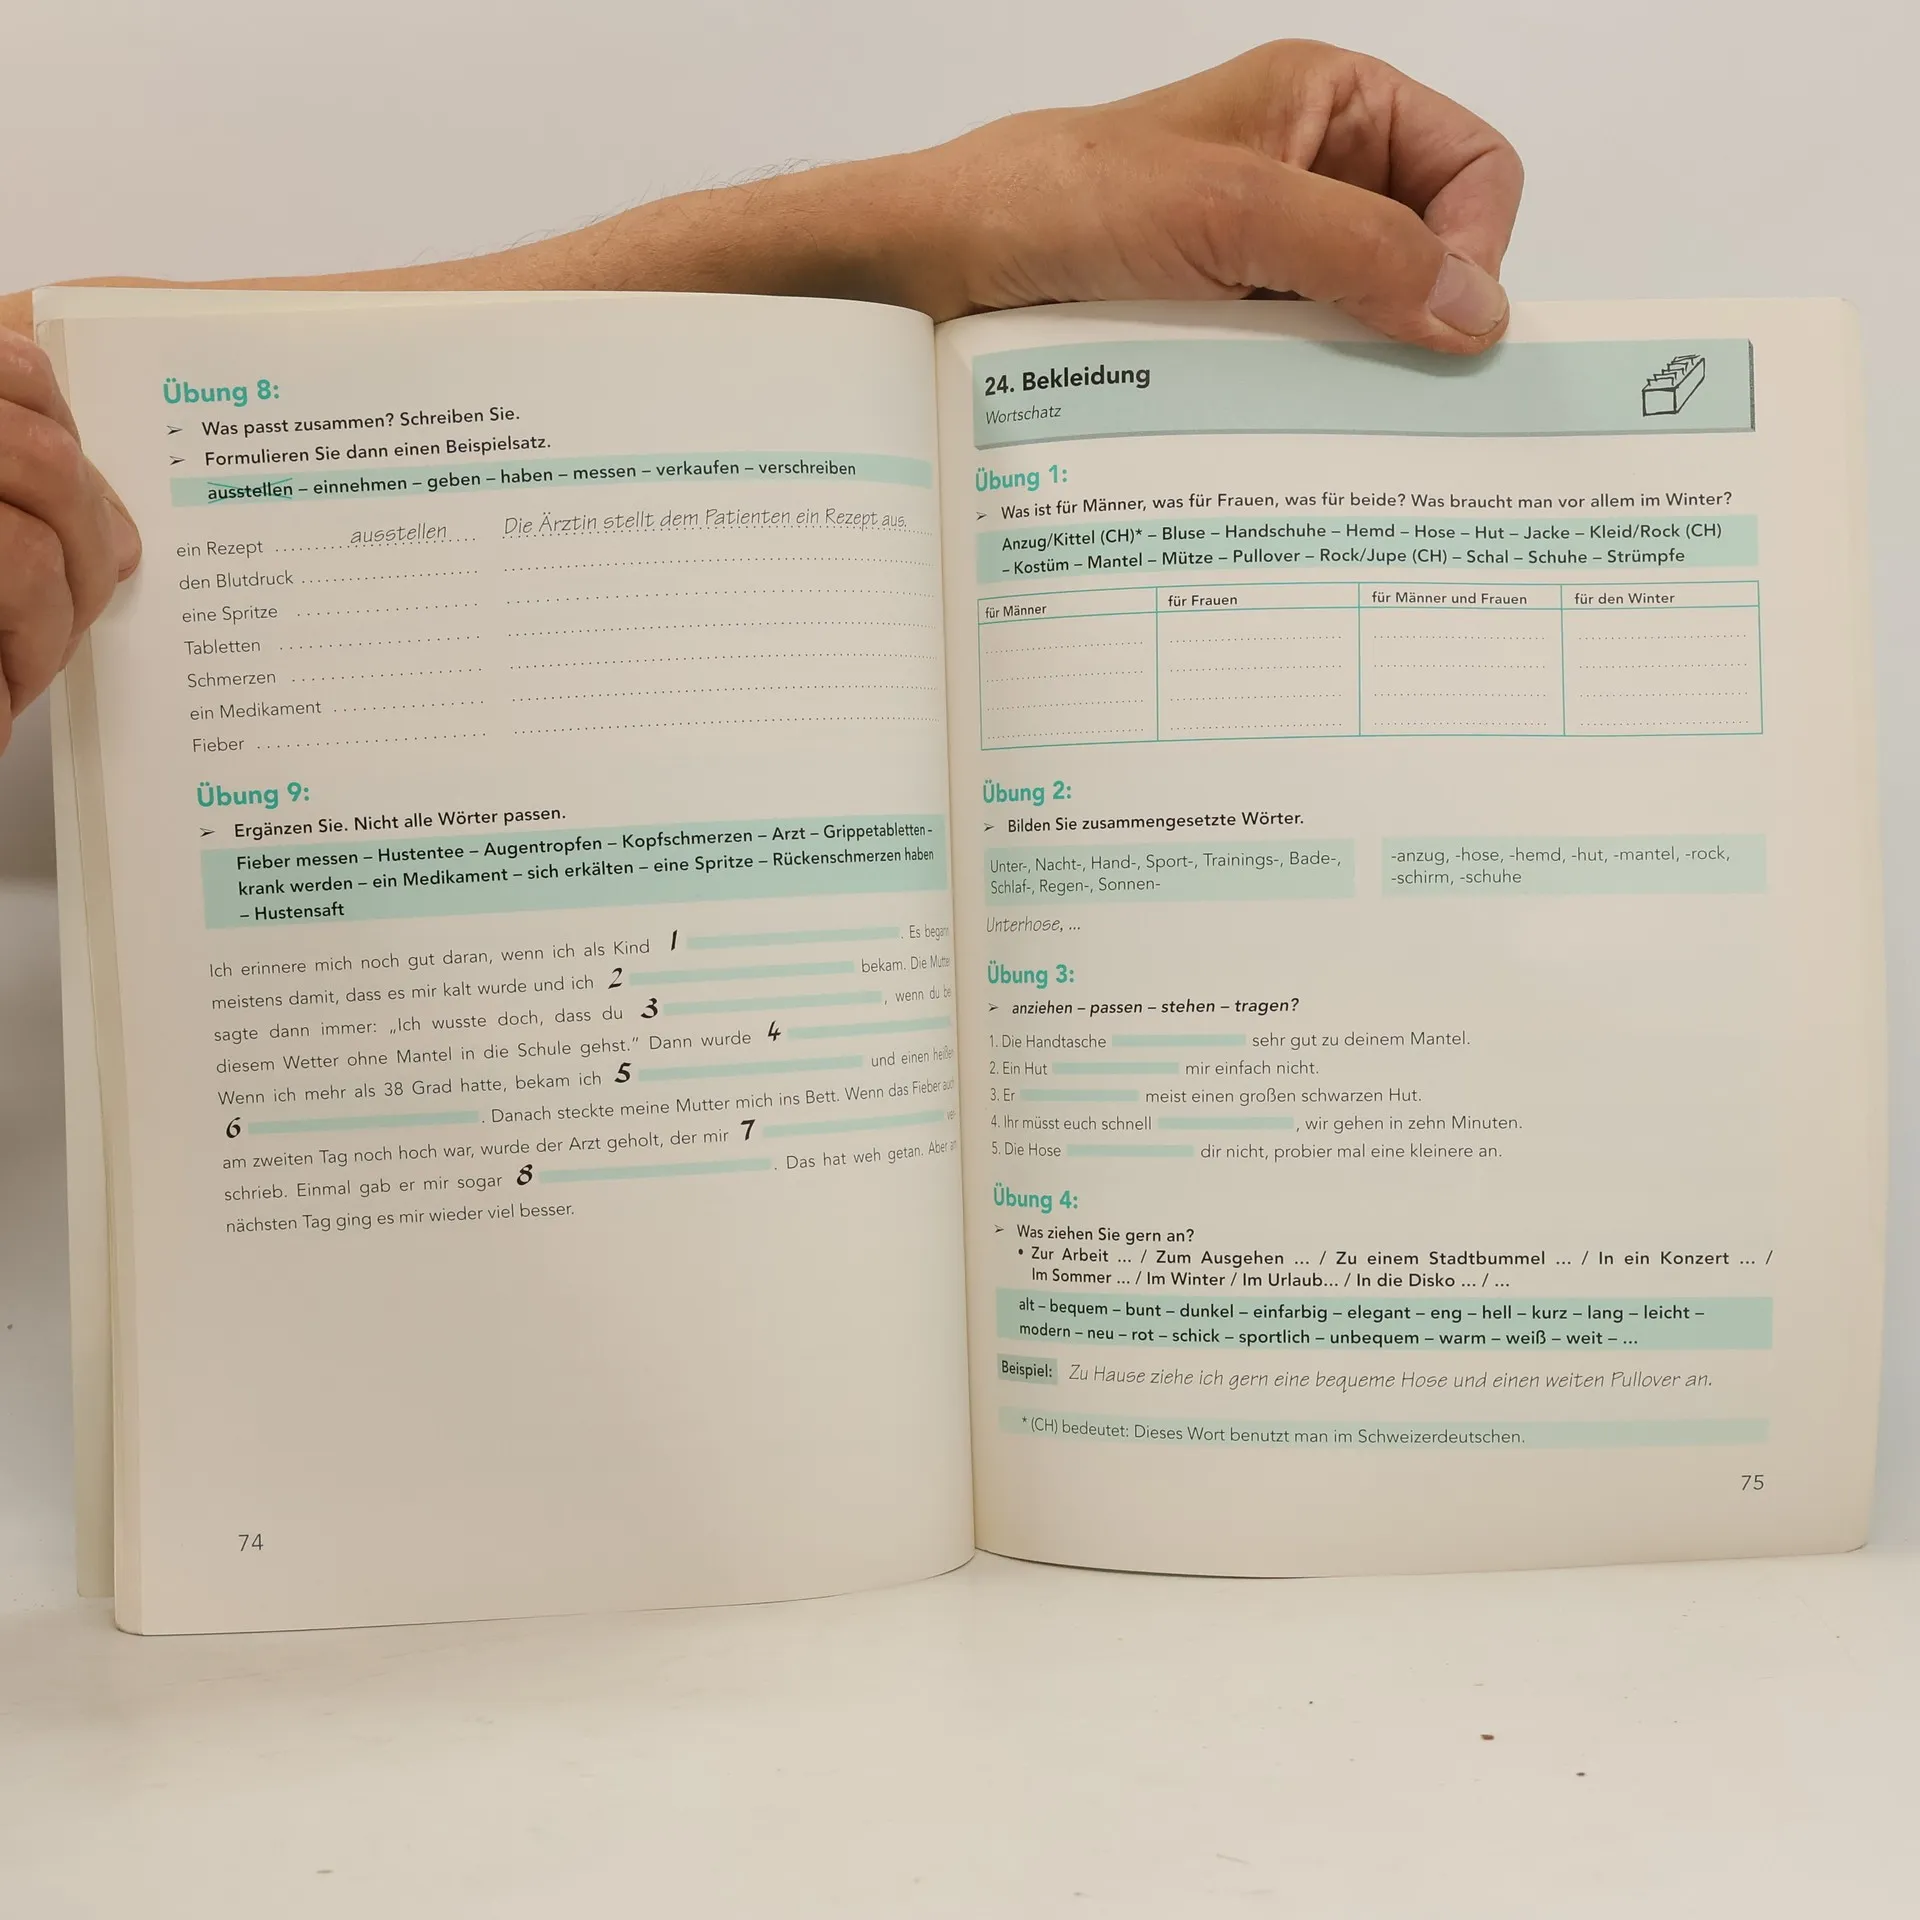 Übung 8:
➢ Was passt zusammen? Schreiben Sie.
➢ Formulieren Sie dann einen Beispielsatz.
ausstellen – einnehmen – geben – haben – messen – verkaufen – verschreiben
ein Rezept ausstellen Die Ärztin stellt dem Patienten ein Rezept aus.
den Blutdruck
eine Spritze
Tabletten
Schmerzen
ein Medikament
Fieber
Übung 9:
➢ Ergänzen Sie. Nicht alle Wörter passen.
Fieber messen – Hustentee – Augentropfen – Kopfschmerzen – Arzt – Grippetabletten –
krank werden – ein Medikament – sich erkälten – eine Spritze – Rückenschmerzen haben
– Hustensaft
Ich erinnere mich noch gut daran, wenn ich als Kind 1 . Es begann
meistens damit, dass es mir kalt wurde und ich 2 bekam. Die
sagte dann immer: „Ich wusste doch, dass du 3 , wenn du
diesem Wetter ohne Mantel in die Schule gehst." Dann wurde 4
Wenn ich mehr als 38 Grad hatte, bekam ich 5 und einen
6 . Danach steckte meine Mutter mich ins Bett. Wenn das Fieber
am zweiten Tag noch hoch war, wurde der Arzt geholt, der mir 7
schrieb. Einmal gab er mir sogar 8 . Das hat weh getan. Aber
nächsten Tag ging es mir wieder viel besser.
74
24. Bekleidung
Wortschatz
Übung 1:
➢ Was ist für Männer, was für Frauen, was für beide? Was braucht man vor allem im Winter?
Anzug/Kittel (CH)* – Bluse – Handschuhe – Hemd – Hose – Hut – Jacke – Kleid/Rock (CH)
– Kostüm – Mantel – Mütze – Pullover – Rock/Jupe (CH) – Schal – Schuhe – Strümpfe
für Männer für Frauen für Männer und Frauen für den Winter
Übung 2:
➢ Bilden Sie zusammengesetzte Wörter.
Unter-, Nacht-, Hand-, Sport-, Trainings-, Bade-,
Schlaf-, Regen-, Sonnen-
-anzug, -hose, -hemd, -hut, -mantel, -rock,
-schirm, -schuhe
Unterhose, ...
Übung 3:
➢ anziehen – passen – stehen – tragen?
1. Die Handtasche sehr gut zu deinem Mantel.
2. Ein Hut mir einfach nicht.
3. Er meist einen großen schwarzen Hut.
4. Ihr müsst euch schnell , wir gehen in zehn Minuten.
5. Die Hose dir nicht, probier mal eine kleinere an.
Übung 4:
➢ Was ziehen Sie gern an?
• Zur Arbeit ... / Zum Ausgehen ... / Zu einem Stadtbummel ... / In ein Konzert ... /
Im Sommer ... / Im Winter / Im Urlaub... / In die Disko ... / ...
alt – bequem – bunt – dunkel – einfarbig – elegant – eng – hell – kurz – lang – leicht –
modern – neu – rot – schick – sportlich – unbequem – warm – weiß – weit – ...
Beispiel: Zu Hause ziehe ich gern eine bequeme Hose und einen weiten Pullover an.
* (CH) bedeutet: Dieses Wort benutzt man im Schweizerdeutschen.
75